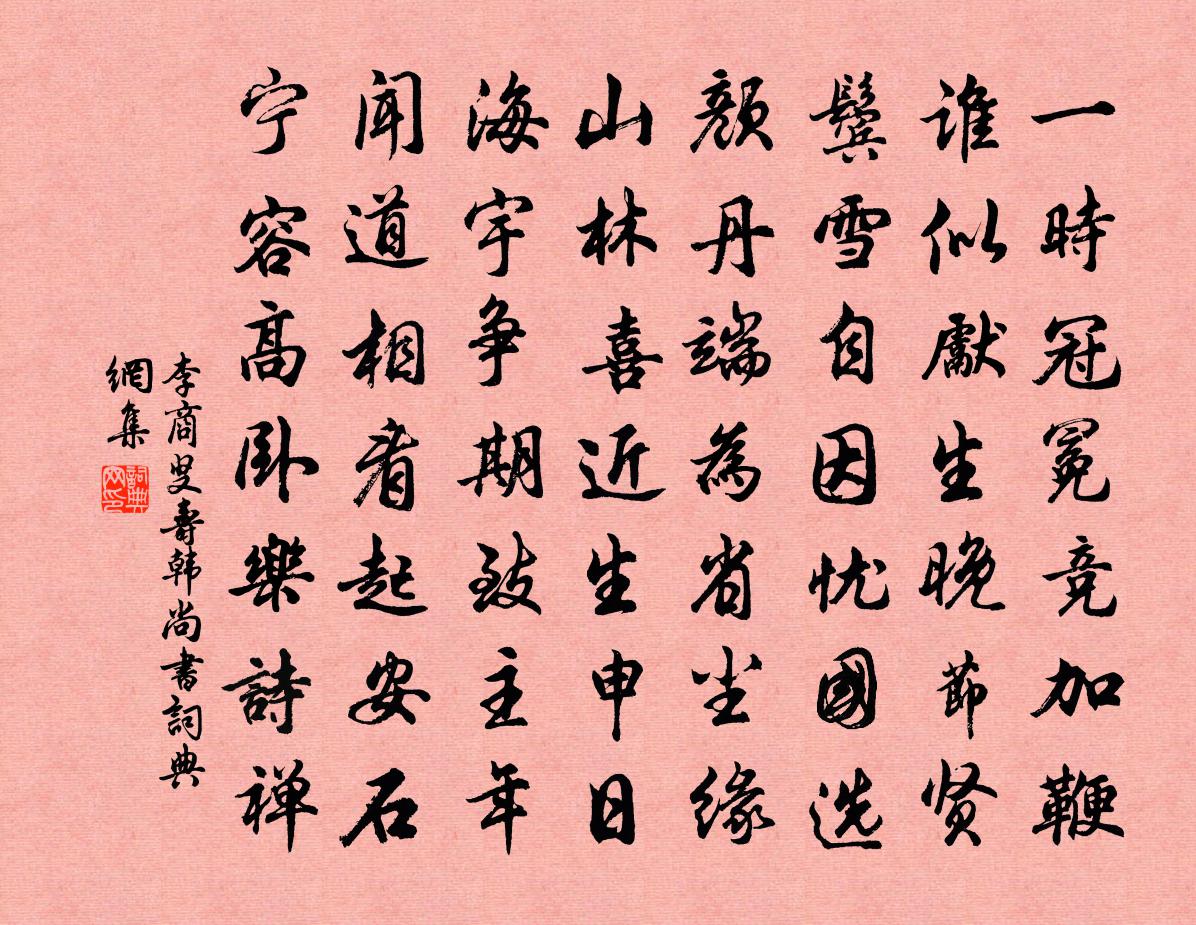 一時冠冕竞加鞭
谁似獻生晚節贤
鬓雪自因忧國选
颜丹端為省尘缘
山林喜近生申日
海宇争期致主年
闻道相看起安石
宁容高卧樂詩禅
李商叟壽韩尚書詞典
網集
詞典
网印